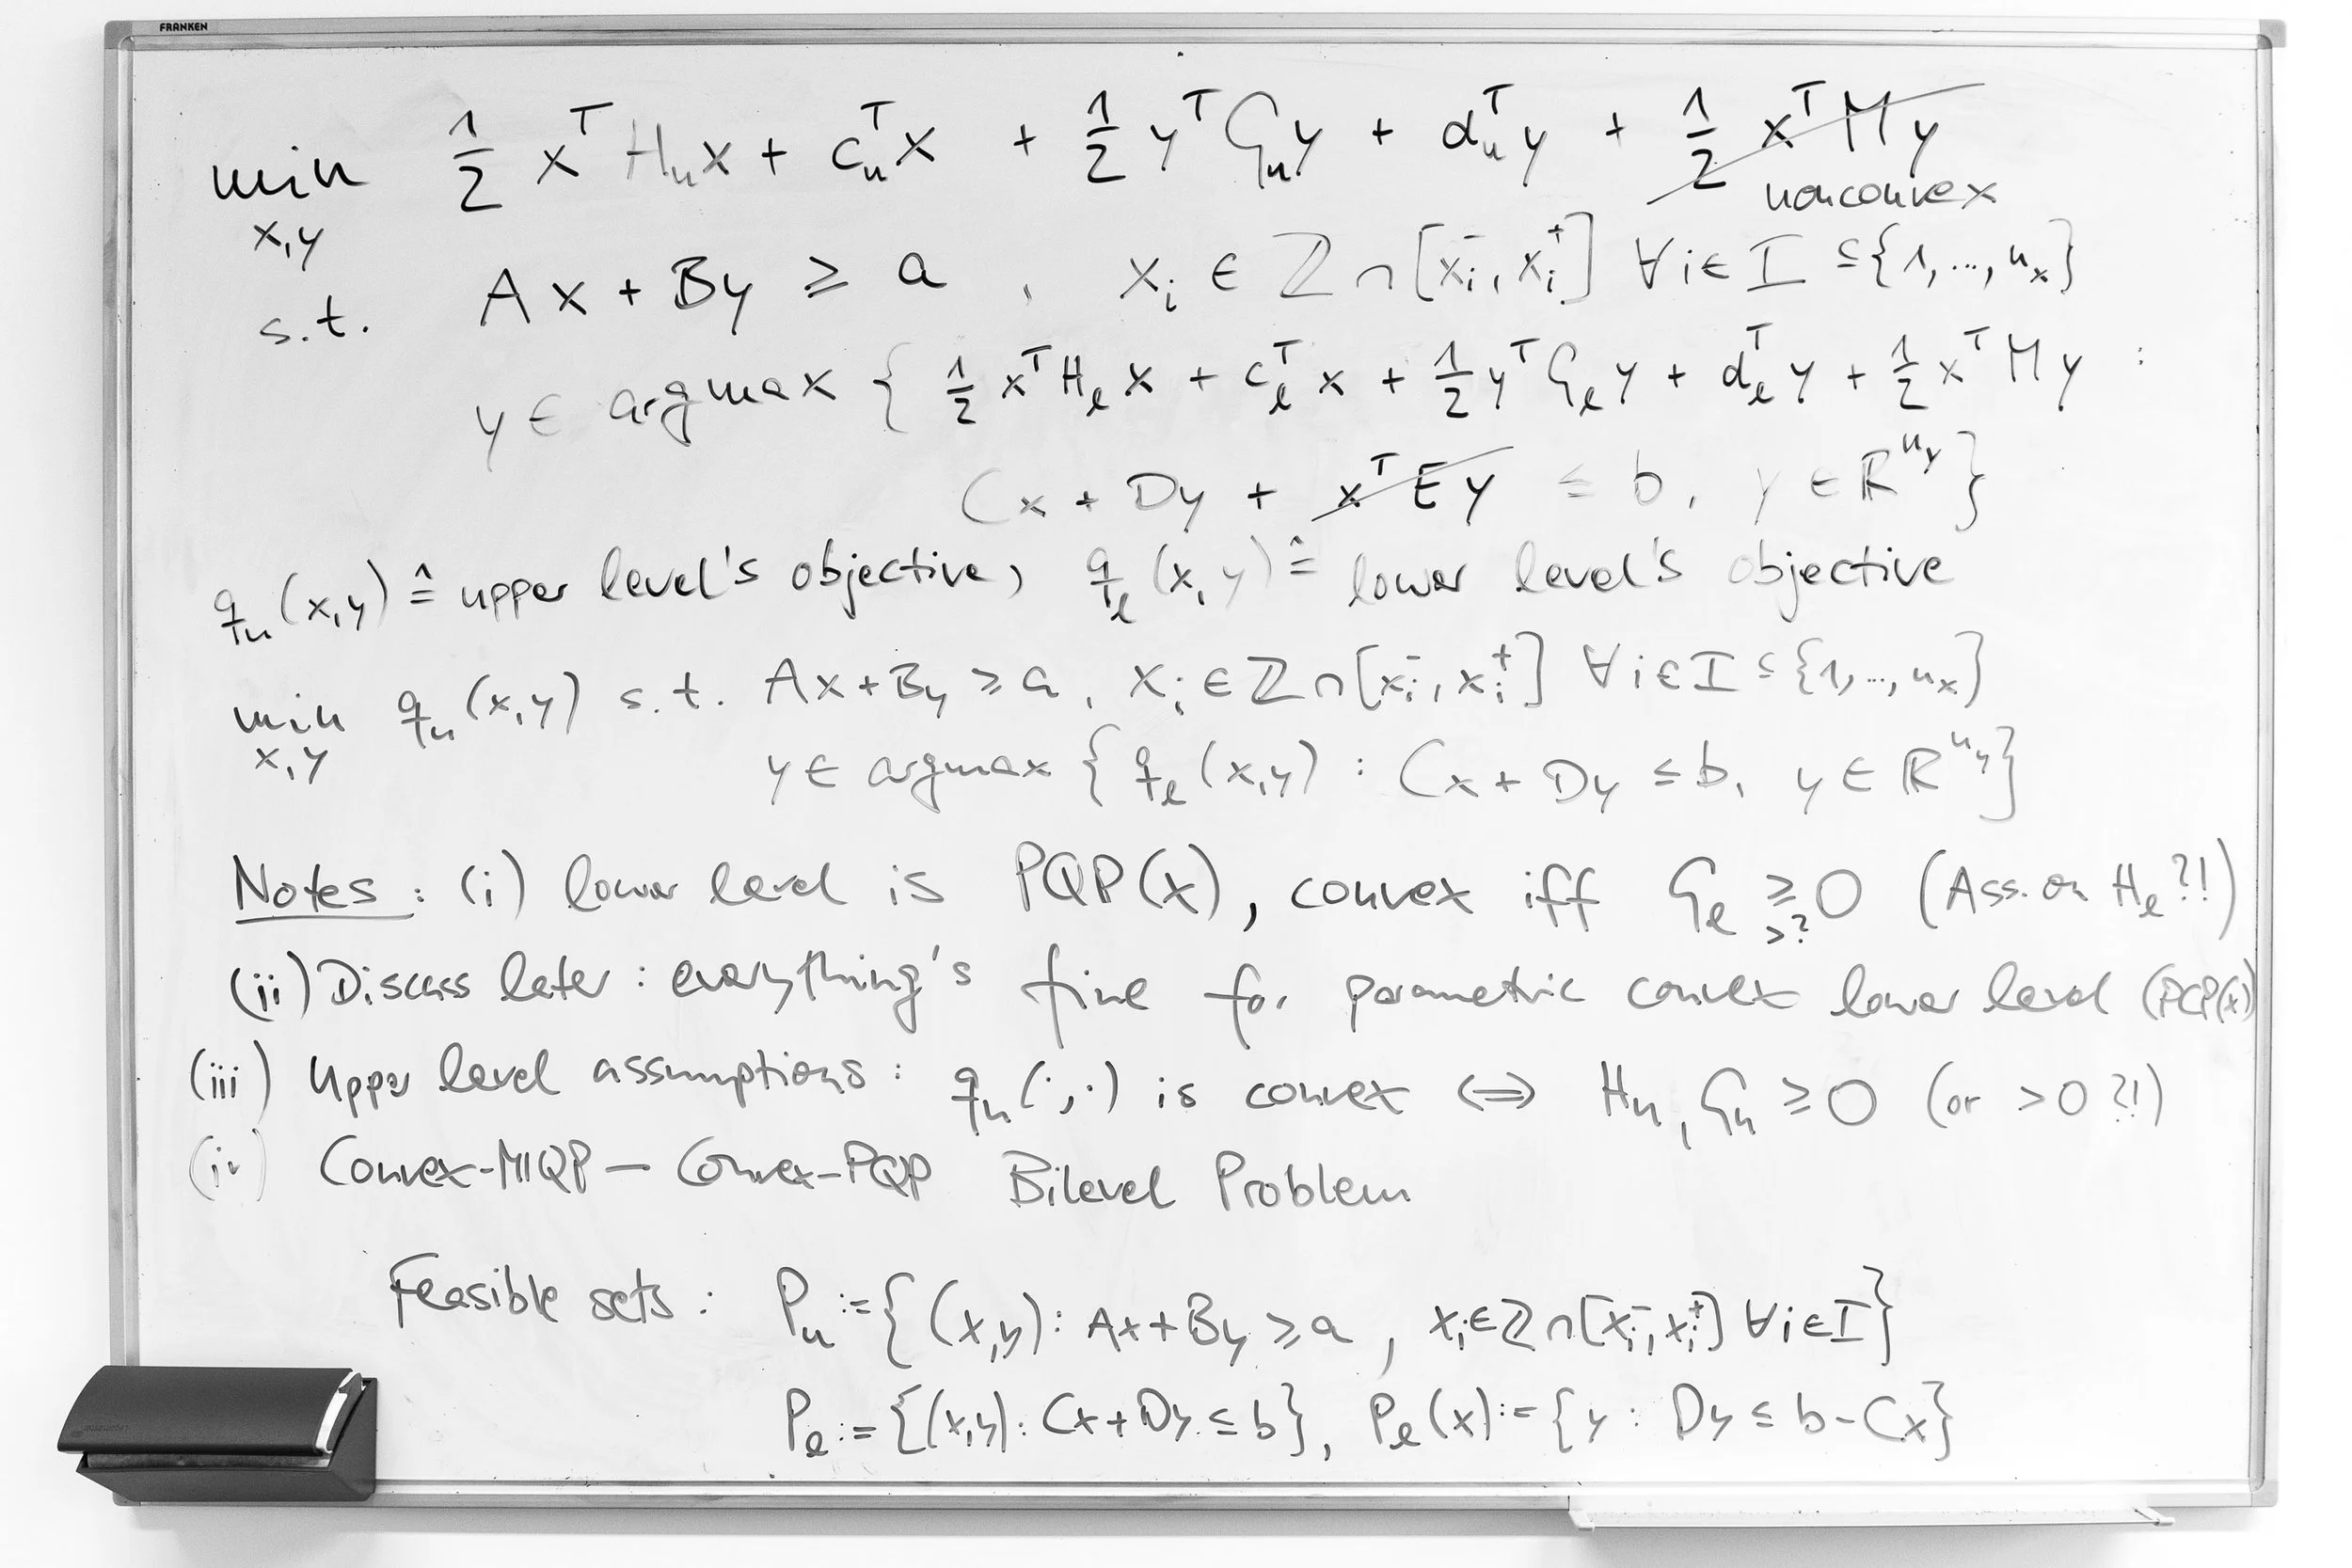 FRANKEN
min ½ xᵀHᵤx + cᵤᵀx + ½ yᵀGᵤy + dᵤᵀy + ½ xᵀMy
x,y nonconvex
s.t. Ax + By ≥ a , xᵢ ∈ ℤ ∩ [xᵢ⁻, xᵢ⁺] ∀i∈I ⊆ {1,...,nₓ}
y ∈ argmax { ½ xᵀH_ℓ x + c_ℓᵀ x + ½ yᵀG_ℓ y + d_ℓᵀ y + ½ xᵀMy :
Cx + Dy + xᵀEy ≤ b, y ∈ ℝ^{n_y} }
qᵤ(x,y) ≙ upper level's objective, q_ℓ(x,y) ≙ lower level's objective
min qᵤ(x,y) s.t. Ax+By ≥ a, xᵢ ∈ ℤ∩[xᵢ⁻, xᵢ⁺] ∀i∈I ⊆ {1,...,nₓ}
x,y y ∈ argmax { q_ℓ(x,y) : Cx + Dy ≤ b, y ∈ ℝ^{n_y} }
Notes: (i) lower level is PQP(x), convex iff G_ℓ ≥ 0 (Ass. on H_ℓ ?!)
>?
(ii) Discuss later: everything's fine for parametric convex lower level (PCP(x))
(iii) Upper level assumptions: qᵤ(·,·) is convex ⇔ Hᵤ, Gᵤ ≥ 0 (or >0 ?!)
(iv) Convex-MIQP – Convex-PQP Bilevel Problem
Feasible sets: Pᵤ := {(x,y): Ax+By ≥ a, xᵢ∈ℤ∩[xᵢ⁻, xᵢ⁺] ∀i∈I}
P_ℓ := {(x,y): Cx+Dy ≤ b}, P_ℓ(x) := {y : Dy ≤ b-Cx}